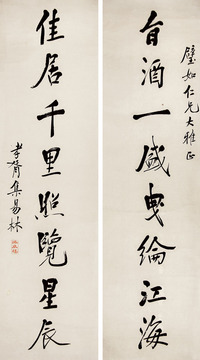 璧如仁兄大雅正
旨酒一盛曳綸江海
佳居千里照覽星辰
孝胥集易林